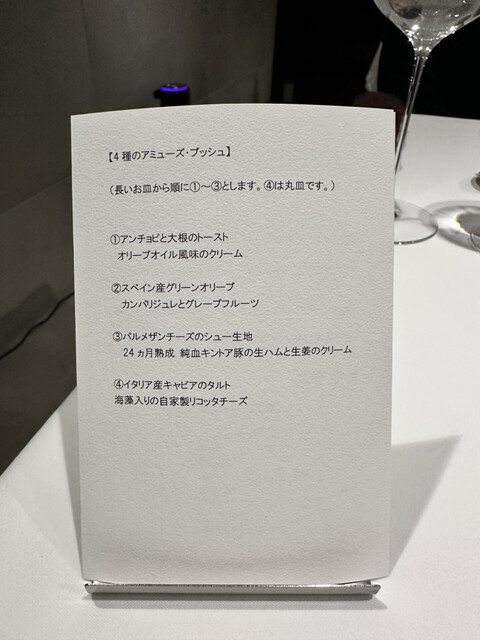 【4種のアミューズ・ブッシュ】
(長いお皿から順に①～③とします。④は丸皿です。)
①アンチョビと大根のトースト
オリーブオイル風味のクリーム
②スペイン産グリーンオリーブ
カンパリジュレとグレープフルーツ
③パルメザンチーズのシュー生地
24ヵ月熟成 純血キントア豚の生ハムと生姜のクリーム
④イタリア産キャビアのタルト
海藻入りの自家製リコッタチーズ